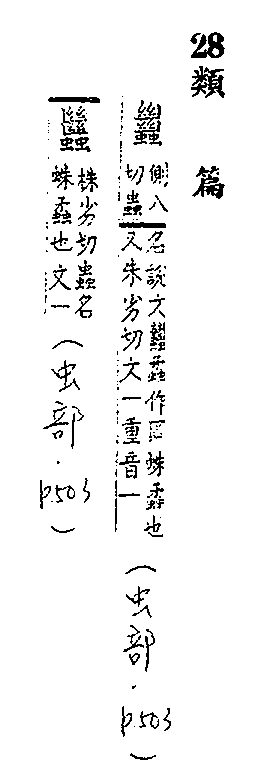 28
類篇
蠿側八切蟲名說文蠿蟊作罔蛛蟊也又朱劣切文一重音一(虫部.p.503)
株劣切蟲名蛛蟊也文一(虫部.p.503)